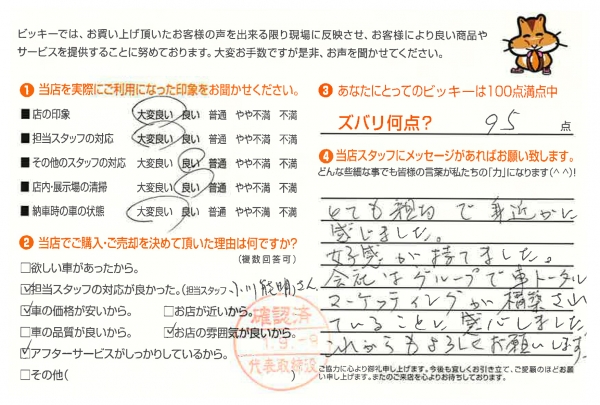 ビッキーでは、お買い上げ頂いたお客様の声を出来る限り現場に反映させ、お客様により良い商品や
サービスを提供することに努めております。大変お手数ですが是非、お声を聞かせてください。
❶ 当店を実際にご利用になった印象をお聞かせください。
■ 店の印象 大変良い 良い 普通 やや不満 不満
■ 担当スタッフの対応 大変良い 良い 普通 やや不満 不満
■ その他のスタッフの対応 大変良い 良い 普通 やや不満 不満
■ 店内・展示場の清掃 大変良い 良い 普通 やや不満 不満
■ 納車時の車の状態 大変良い 良い 普通 やや不満 不満
❷ 当店でご購入・ご売却を決めて頂いた理由は何ですか?
(複数回答可)
□欲しい車があったから。
☑担当スタッフの対応が良かった。(担当スタッフ 小川能明さん
☑車の価格が安いから。 □お店が近いから。
□車の品質が良いから。 ☑お店の雰囲気が良いから。
☑アフターサービスがしっかりしているから。
□その他( )
確認済
1.9.-9
代表取締役
❸ あなたにとってのビッキーは100点満点中
ズバリ何点? 95 点
❹ 当店スタッフにメッセージがあればお願い致します。
どんな些細な事でも皆様の言葉が私たちの「力」になります(^^)!
とても親切で身近かに
感じました。
好感が持てました。
会社はグループで車トータル
マーケッティングが構築され
ていることに感心しました
これからもよろしくお願いします
ご協力に心より御礼申し上げます。今後も宜しくお引き立て、ご愛顧のほどお願
い申し上げます。またのご来店を心よりお待ちしております。